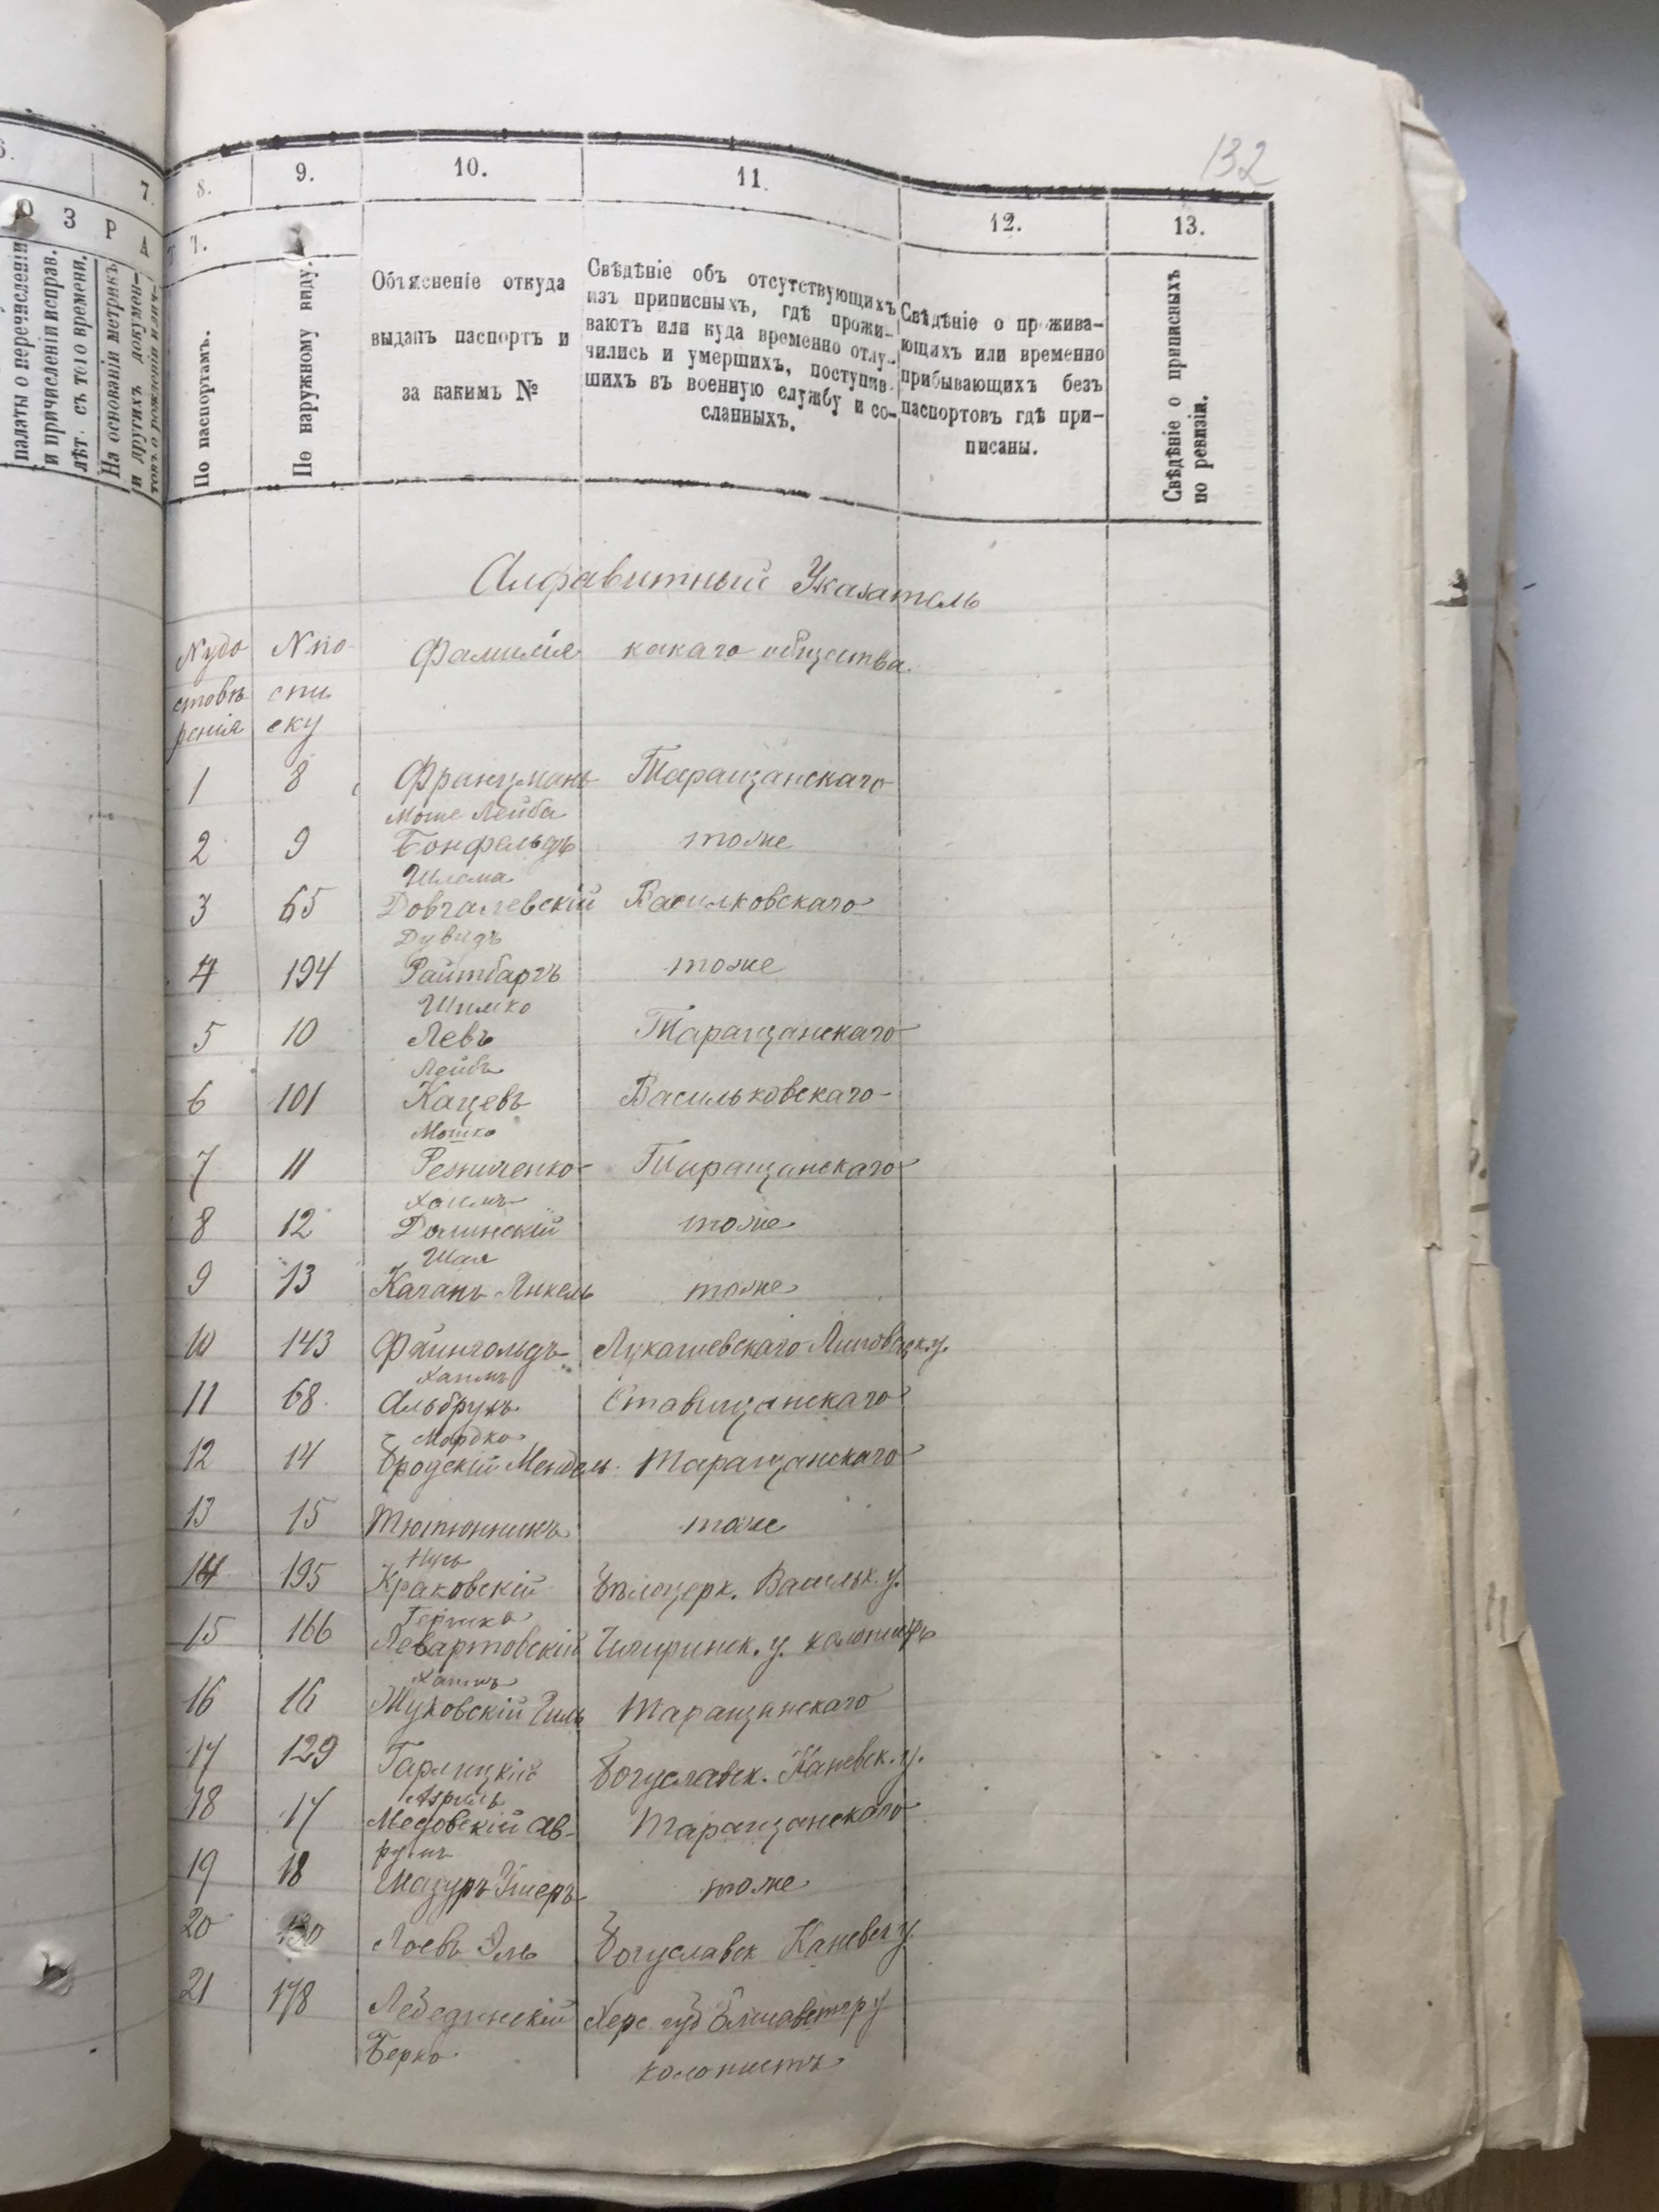 132
6.
7.
8.
9.
10.
11.
12.
13.
О З Р А
палаты о перечисленіи
и причисленіи исправ.
лѣт. съ того времени.
На основаніи метрикъ
и другихъ докумен-
товъ о рожденіи
По паспортамъ.
По наружному виду.
Объясненіе откуда
выданъ паспортъ и
за какимъ №
Свѣдѣніе объ отсутствующихъ
изъ приписныхъ, гдѣ прожи-
ваютъ или куда временно отлу-
чились и умершихъ, поступив-
шихъ въ военную службу и со-
сланныхъ.
Свѣдѣніе о прожива-
ющихъ или временно
прибывающихъ безъ
паспортовъ гдѣ при-
писаны.
Свѣдѣніе о приписныхъ
по ревизіи.
Алфавитный Указатель
N удо N по Фамилія какаго общества
стовѣ спи
ренія ску
1 8 Французманъ Таращанскаго
Моше Лейба
2 9 Бонфельдъ тоже
Шлема
3 65 Довгалевскій Васильковскаго
Дувидъ
4 194 Райтбаргъ тоже
Шимко
5 10 Левъ Таращанскаго
Лейбъ
6 101 Кацевъ Васильковскаго
Мошко
7 11 Резниченко Таращанскаго
Хаимъ
8 12 Долинскій тоже
Шая
9 13 Каганъ Янкель тоже
10 143 Файнгольдъ Лукашевскаго Липовецк.у.
Хаимъ
11 68 Альбрухъ Ставищанскаго
Мордко
12 14 Бродскій Мендель Таращанскаго
13 15 Тютюнникъ тоже
Нусь
14 195 Краковскій Бѣлоцерк. Васильк. у.
Гершко
15 166 Левартовскій Чигиринск. у. колонистъ
Хаимъ
16 16 Жуковскій Гиль Таращанскаго
17 129 Гарлицкій Богуславск. Каневск. у.
Азриль
18 17 Медовскій Ав- Таращанскаго
румъ
19 18 Мазуръ Ушеръ тоже
20 130 Лоевъ Эль Богуславск Каневск у.
21 178 Лебединскій Херс губ Елисаветгр у
Берко колонистъ